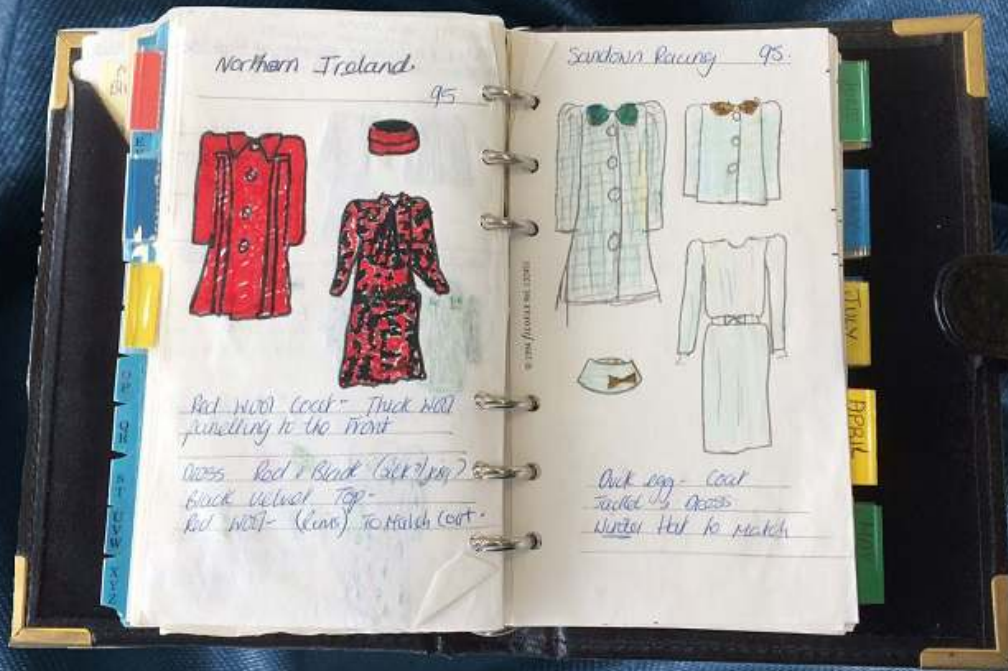 Northern Ireland.
95
Red wool Coat - Thick wool
panelling to the front
Dress Red & Black
Black velvet Top -
Red wool - To Match Coat.
Sandown Racing 95.
Duck egg - Coat
Jacket & Dress
Winter Hat to Match
OP
QR
ST
UVW
XYZ
JULY
APRIL